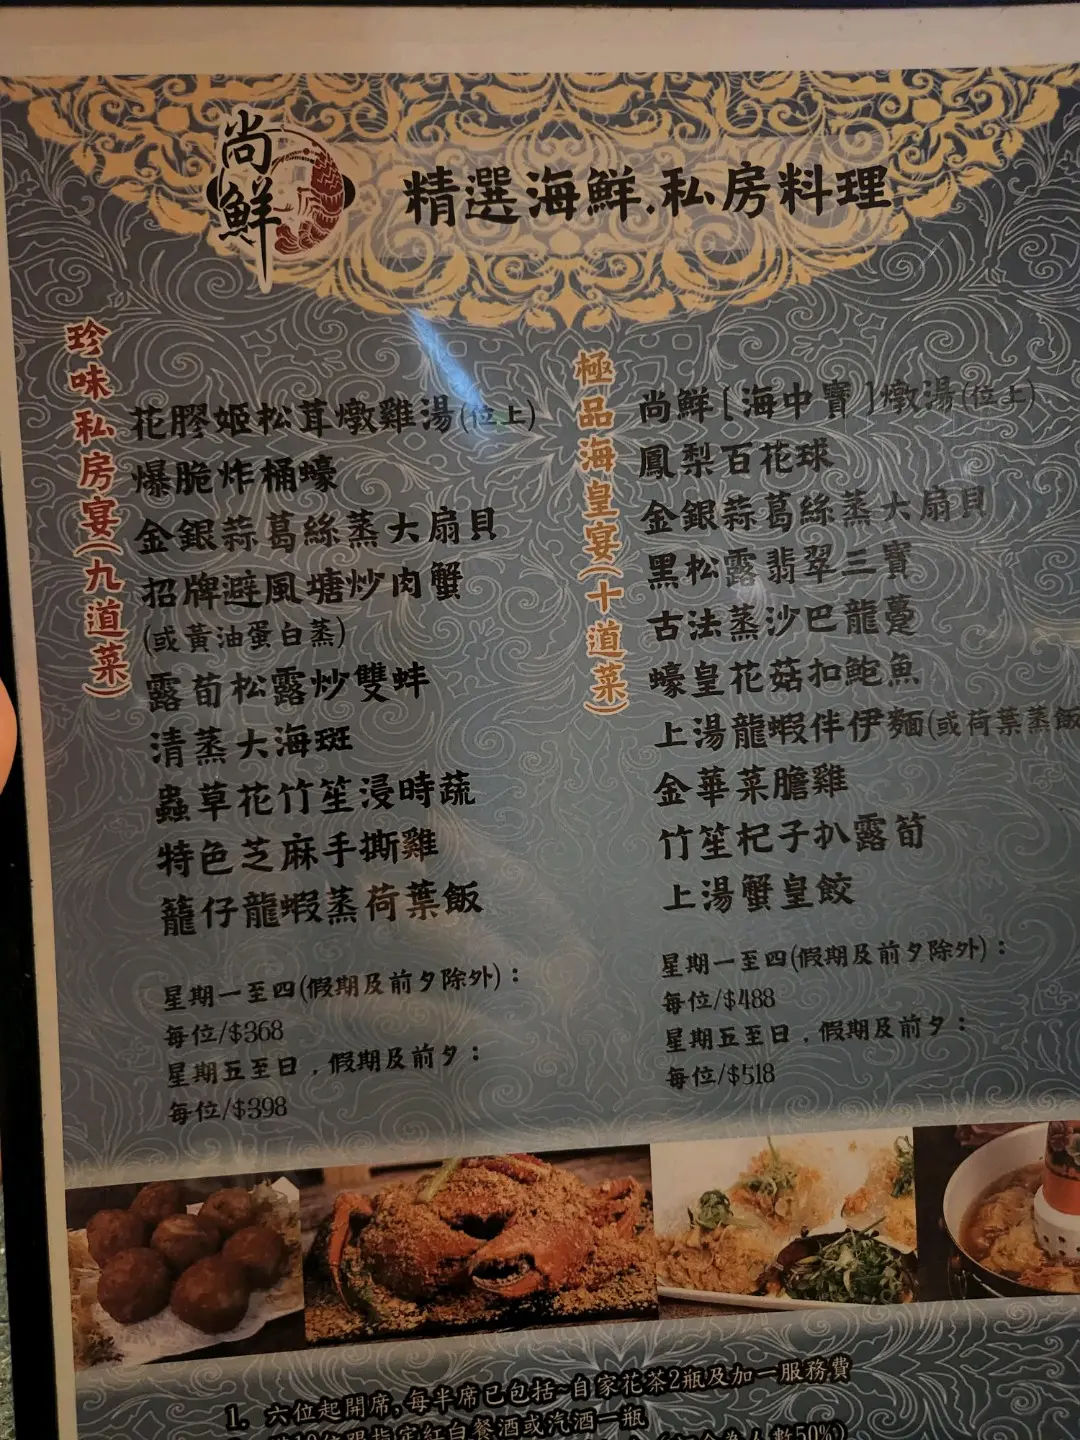 尚鮮
精選海鮮.私房料理
珍味私房宴(九道菜)
花膠姬松茸燉雞湯(位上)
爆脆炸桶蠔
金銀蒜葛絲蒸大扇貝
招牌避風塘炒肉蟹
(或黃油蛋白蒸)
露荀松露炒雙蚌
清蒸大海斑
蟲草花竹笙浸時蔬
特色芝麻手撕雞
籠仔龍蝦蒸荷葉飯
星期一至四(假期及前夕除外)：
每位/$368
星期五至日，假期及前夕：
每位/$398
極品海皇宴(十道菜)
尚鮮[海中寶]燉湯(位上)
鳳梨百花球
金銀蒜葛絲蒸大扇貝
黑松露翡翠三寶
古法蒸沙巴龍躉
蠔皇花菇扣鮑魚
上湯龍蝦伴伊麵(或荷葉蒸飯
金華菜膽雞
竹笙杞子扒露筍
上湯蟹皇餃
星期一至四(假期及前夕除外)：
每位/$488
星期五至日，假期及前夕：
每位/$518
1. 六位起開席,每半席已包括~自家花茶2瓶及加一服務費
10位跟指定紅白餐酒或汽酒一瓶
人數50%)